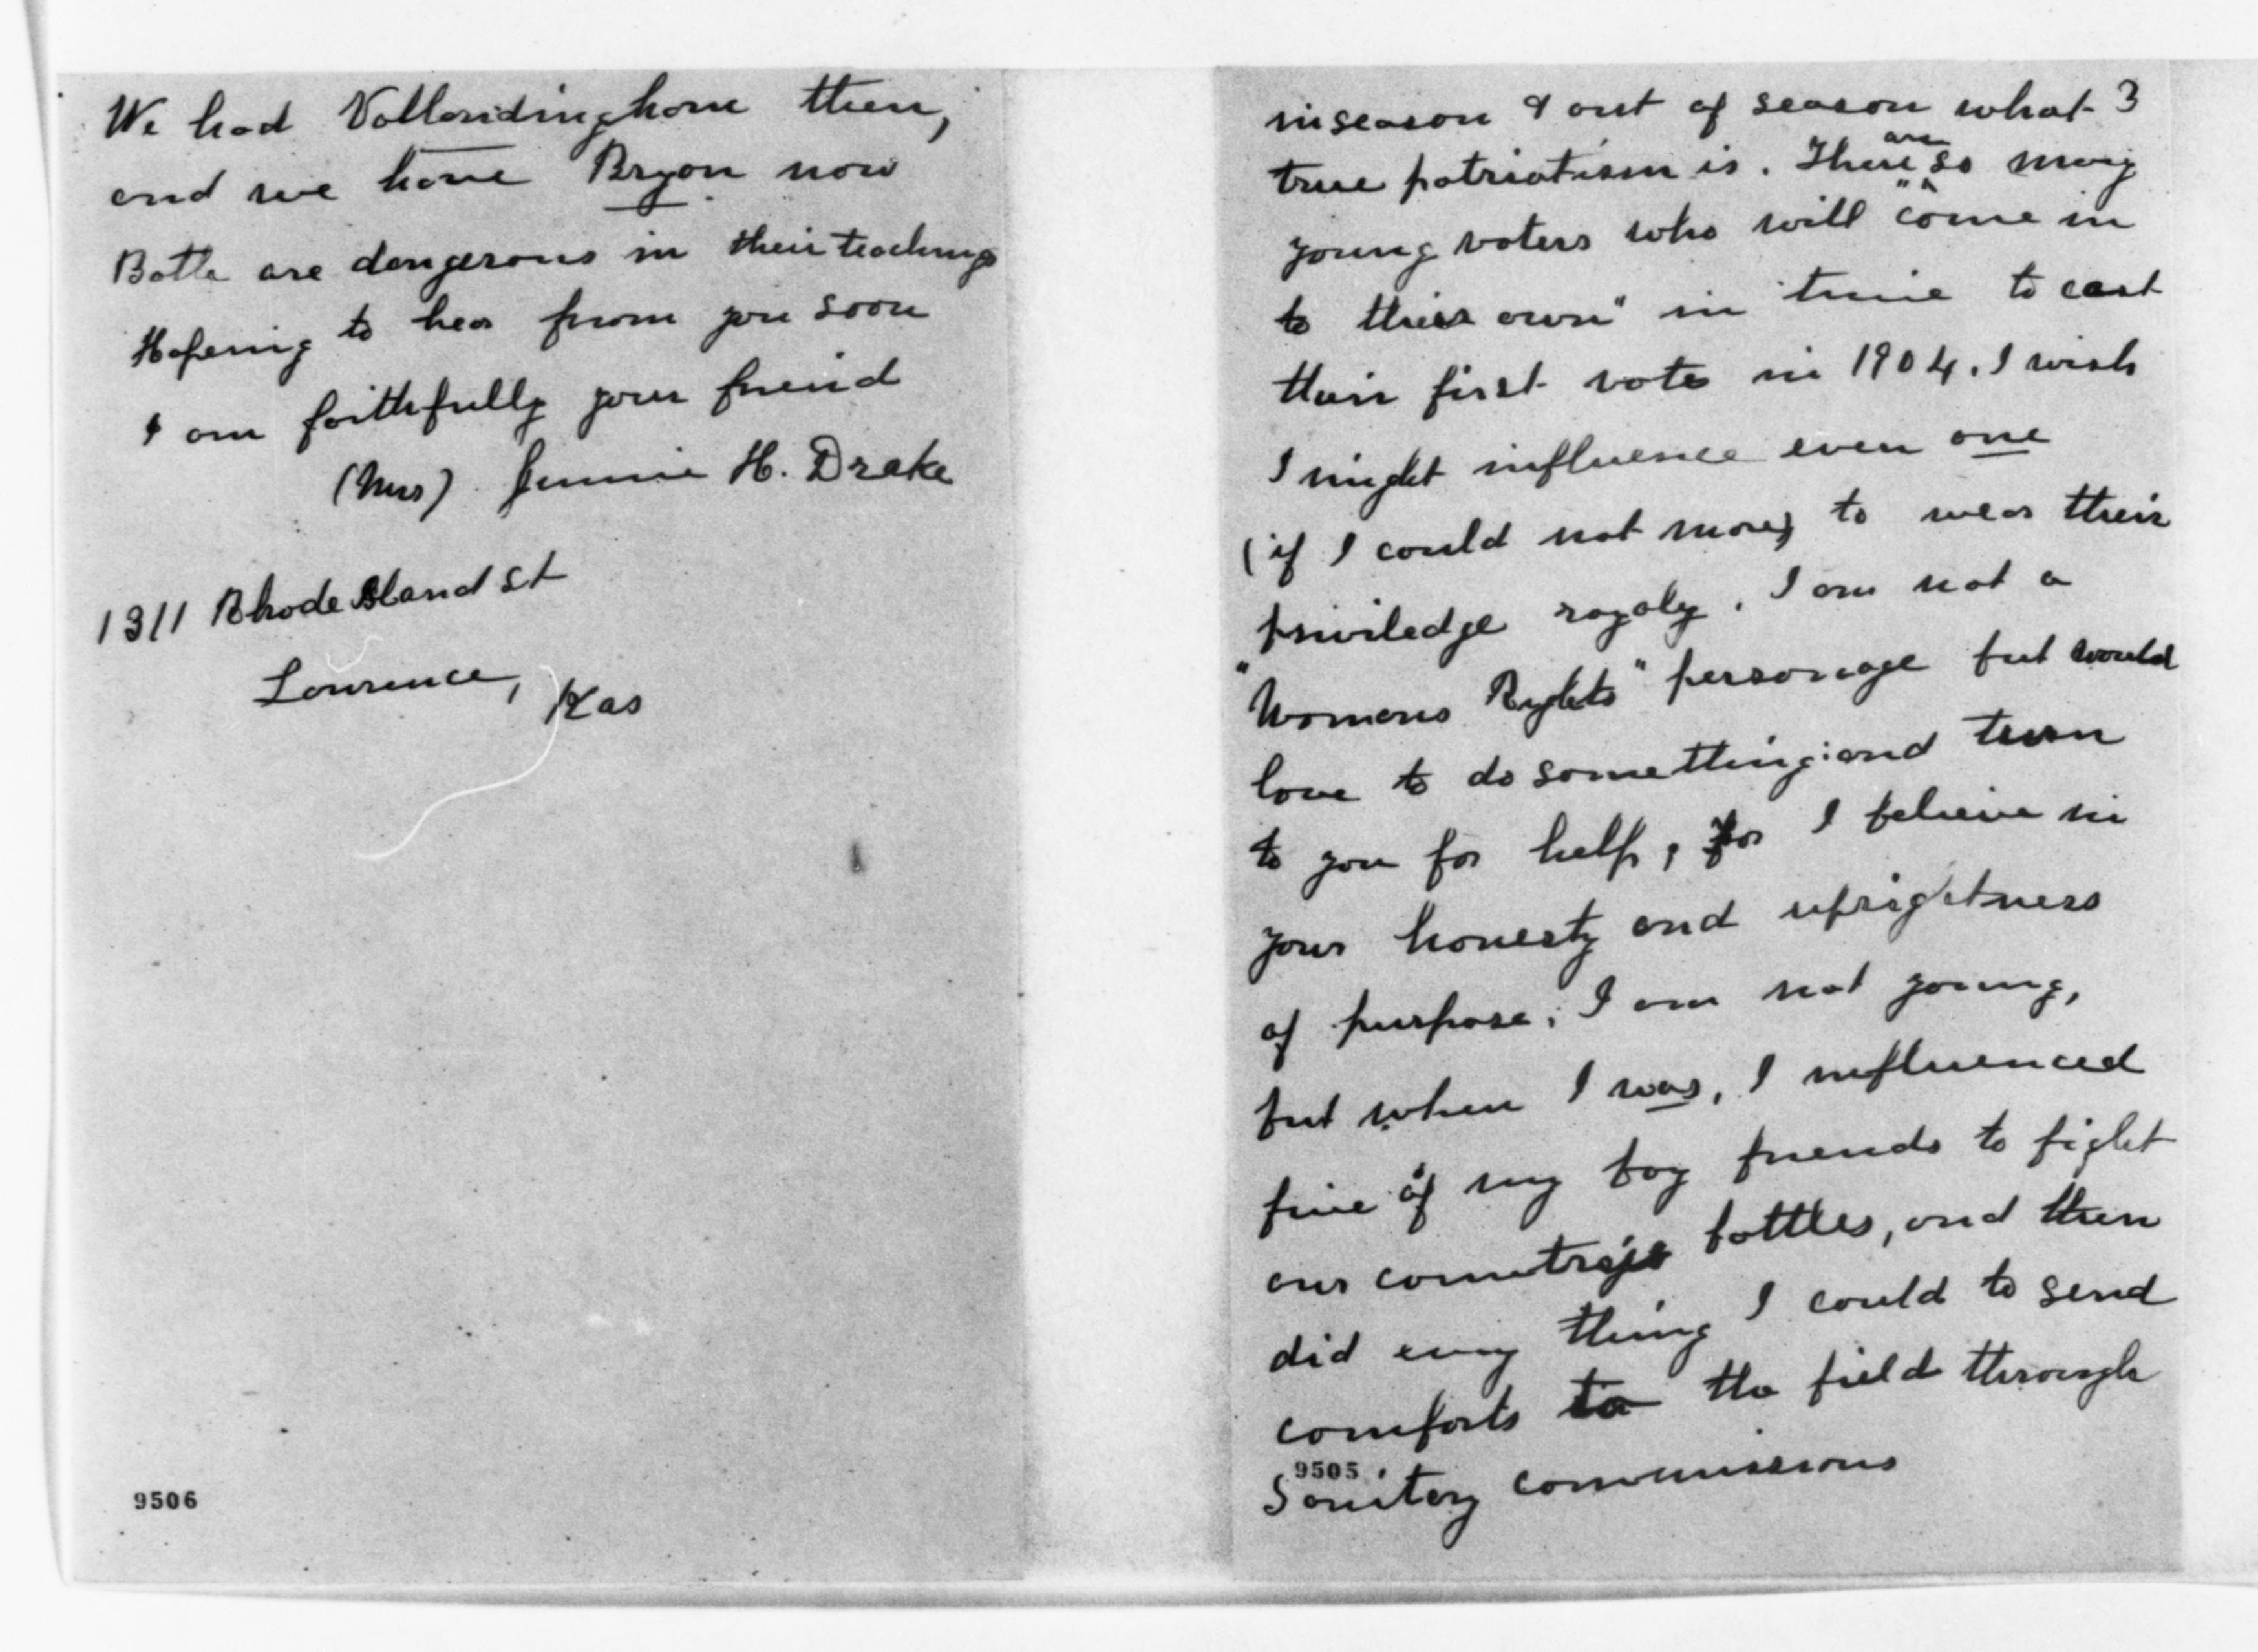 We had Vallandinghame then,
and we have Bryan now
Both are dangerous in their teachings
Hopeing to hear from you soon
I am faithfully your friend
(Mrs) Jennie H. Drake
1311 Rhode Island St
Lawrence, Kas
9506
in season & out of season what 3
true patriotism is. There are so many
young voters who will "come in
to their own" in time to cast
their first vote in 1904. I wish
I might influence even one
(if I could not more) to wear their
priviledge royaly. I am not a
"Womans Rights" personage but would
love to do something: and turn
to you for help, for I believe in
your honesty and uprightness
of purpose. I am not young,
but when I was, I influenced
five of my boy friends to fight
our country's battles, and then
did every thing I could to send
comforts to the field through
9505
Sanitary commissions